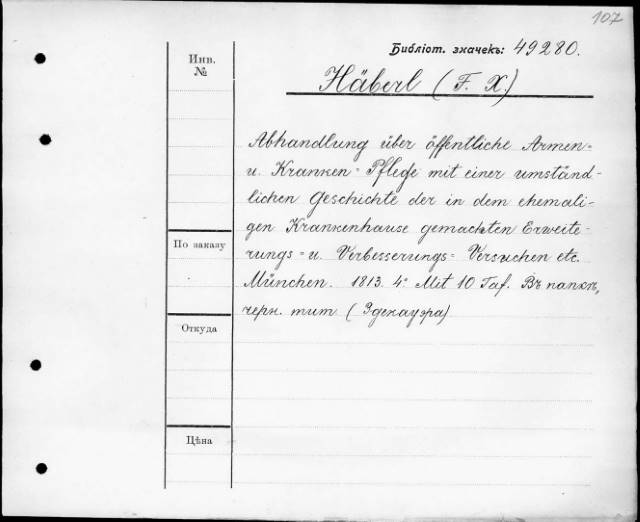 107
Библіот. значекъ: 49280.
Инв.
№
Häberl (F. X.)
Abhandlung über öffentliche Armen=
u. Kranken=Pflege mit einer umständ-
lichen Geschichte der in dem ehemali-
gen Krankenhause gemachten Erweite-
По заказу
rungs= u. Verbesserungs=Versuchen etc.
München. 1813. 4° Mit 10 Taf. Въ папкѣ,
черн. тит (Здекауэра)
Откуда
Цѣна